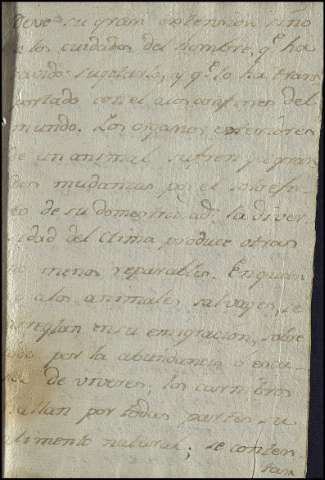 deve su gran extension sino
los cuidados del hombre, q.e ha
savido sugetarlo, y q.e lo ha trans
portado con el a los confines del
mundo. Los organos exteriores
de un animal sufren ya gran
des mudanzas por el solo efe
to de su domesticidad; la diver
sidad del Clima produce otras
no menos reparables. En quan
to a los animales salvages, se
arreglan en su emigracion, sobre
todo por la abundancia o esca
sez de viveres; los carnibros
hallan por todas partes su
alimento natural; se conten
tan